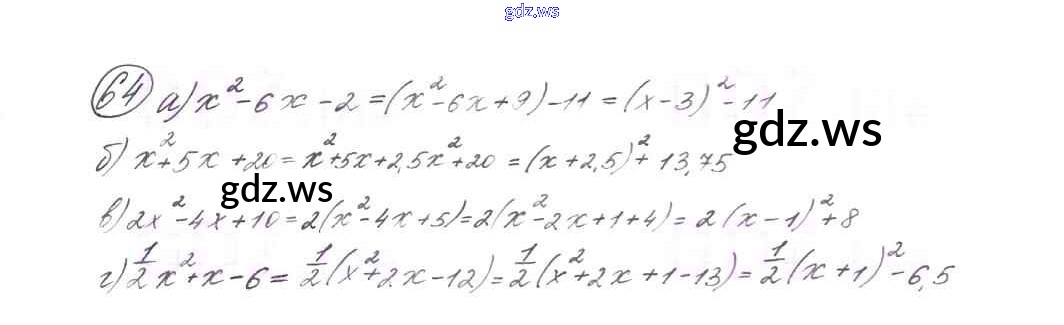 gdz.ws
64 а) x² - 6x - 2 = (x² - 6x + 9) - 11 = (x - 3)² - 11
gdz.ws
б) x² + 5x + 20 = x² + 5x + 2,5x² + 20 = (x + 2,5)² + 13,75
gdz.ws
в) 2x² - 4x + 10 = 2(x² - 4x + 5) = 2(x² - 2x + 1 + 4) = 2(x - 1)² + 8
г) 1/2 x² + x - 6 = 1/2 (x² + 2x - 12) = 1/2 (x² + 2x + 1 - 13) = 1/2 (x + 1)² - 6,5